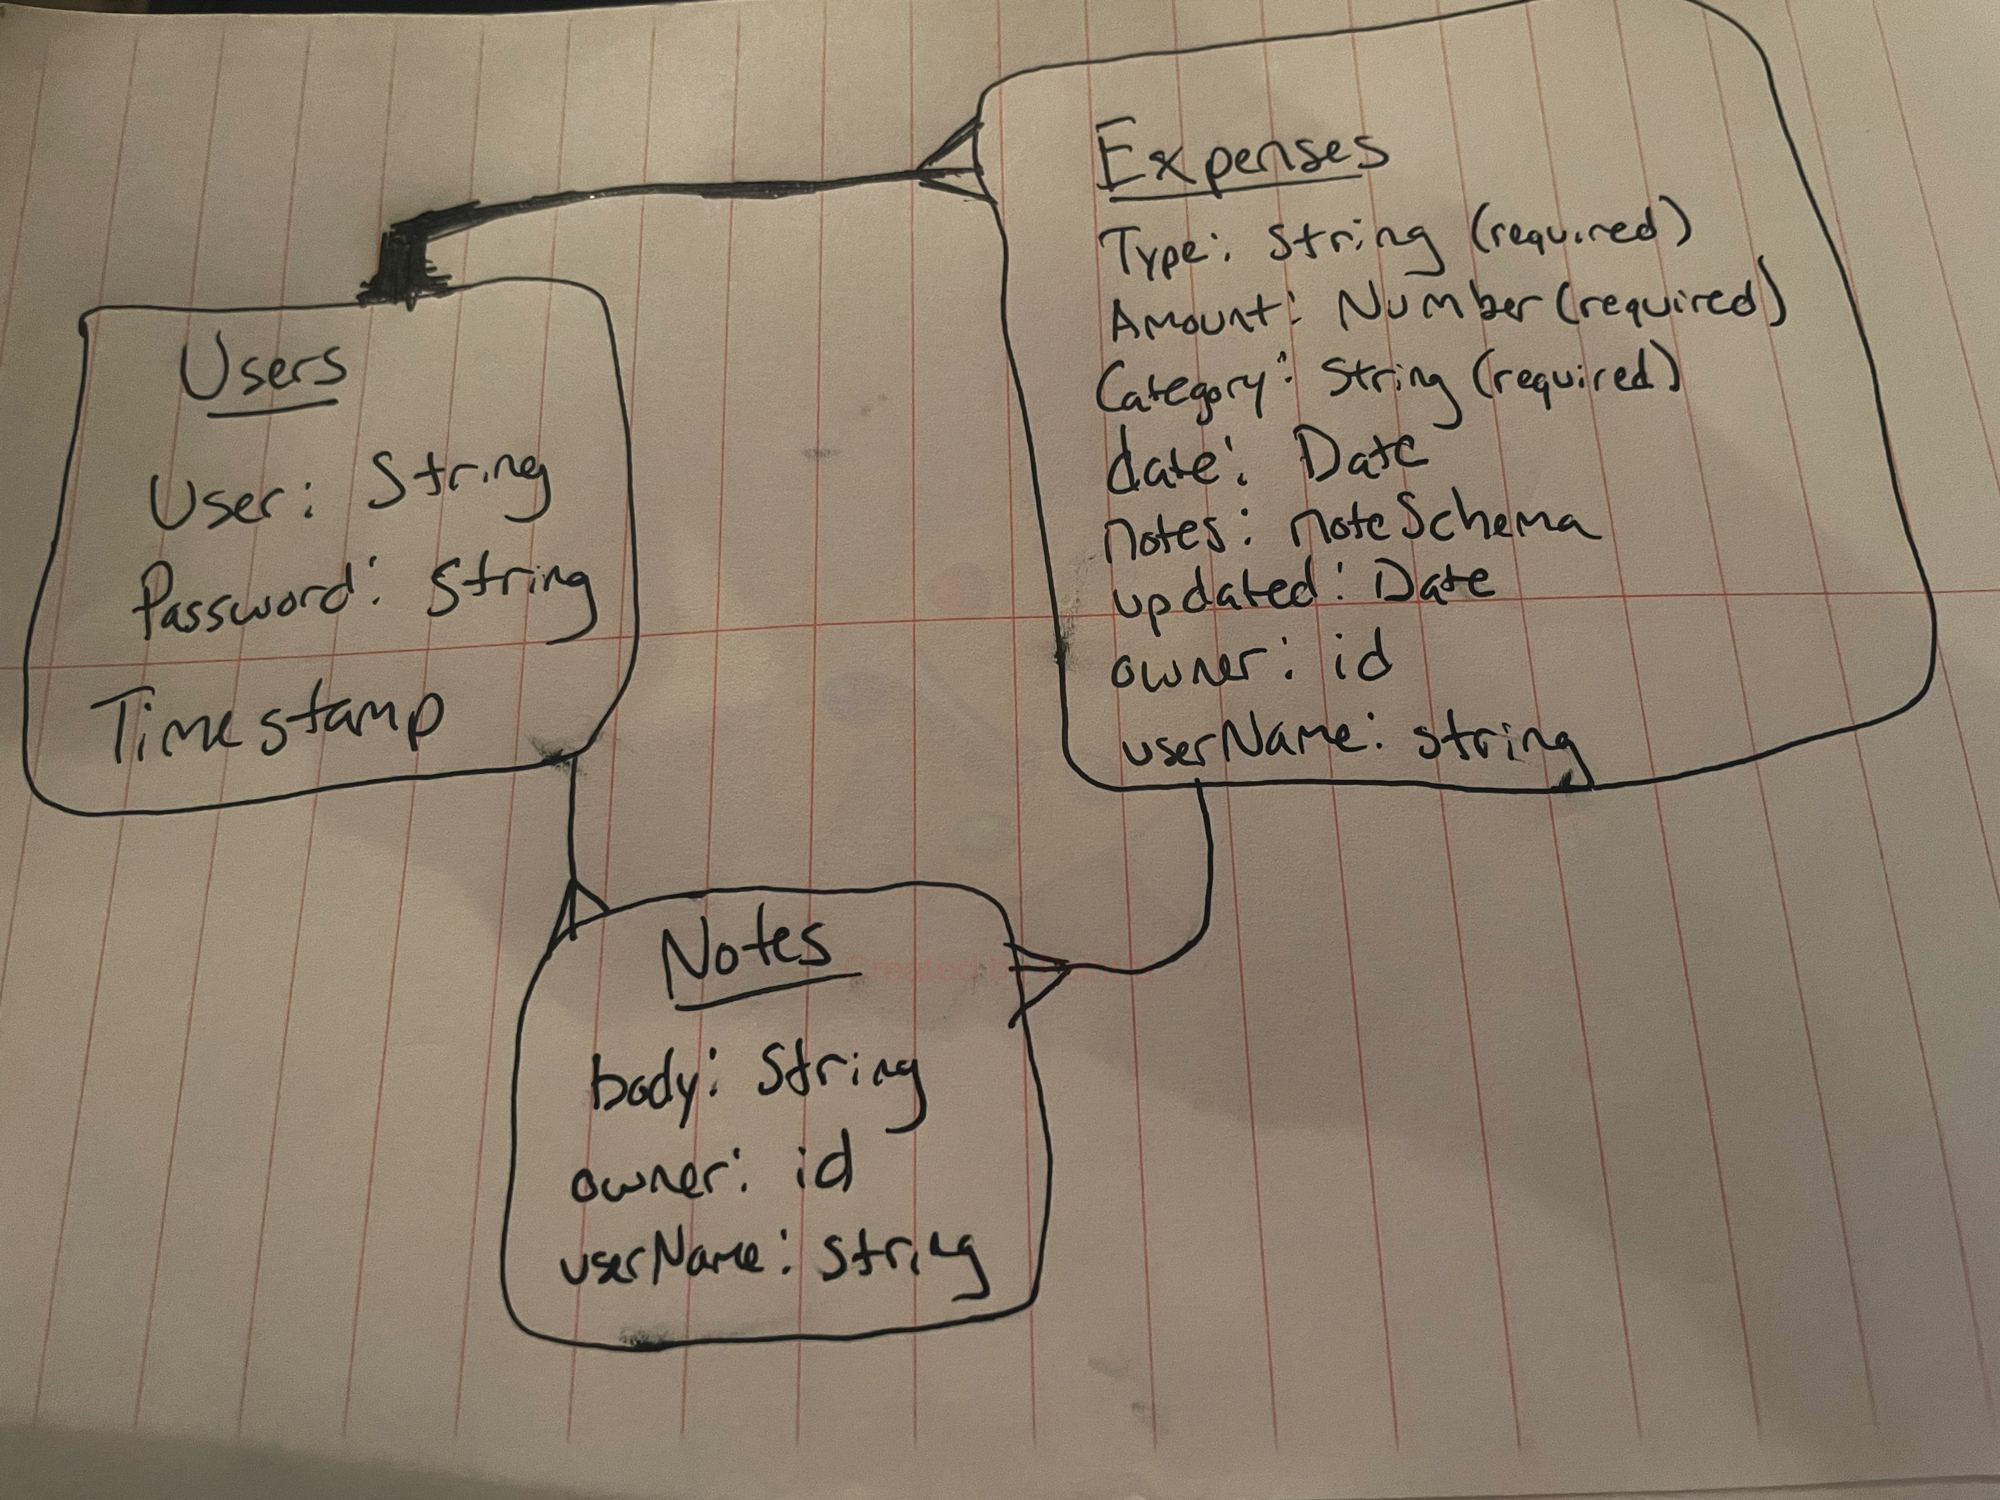 Users
User: String
Password: String
Timestamp
Expenses
Type: String (required)
Amount: Number (required)
Category: String (required)
date: Date
notes: noteSchema
updated: Date
owner: id
userName: string
Notes
body: String
owner: id
userName: string
Created